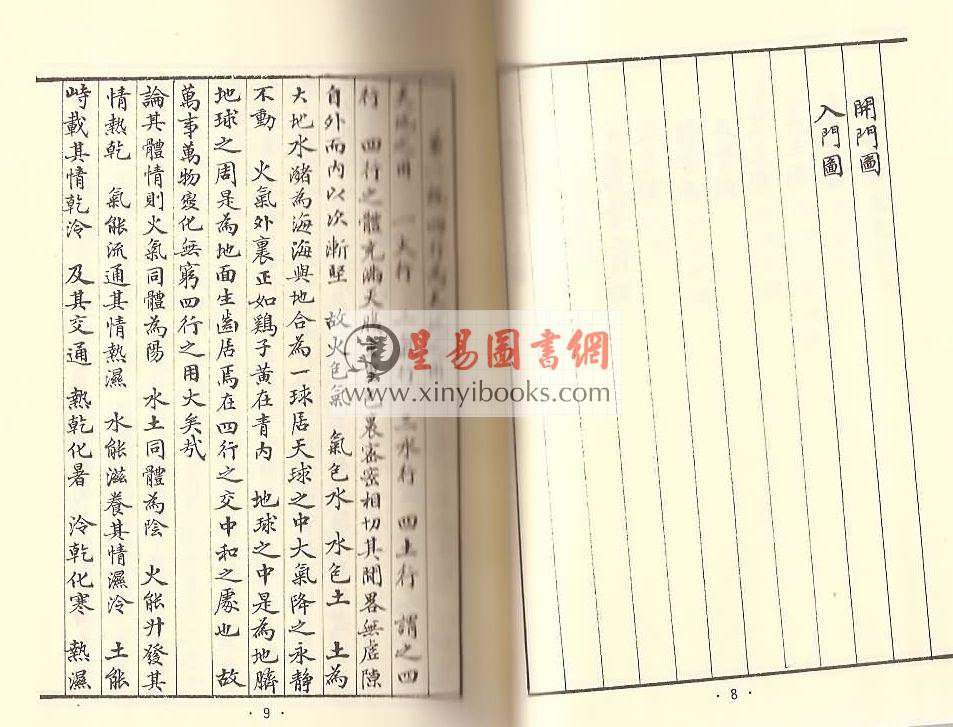 開門圖
入門圖
· 8 ·
一火行 三水行 四土行 謂之四
行 四行之體充滿天 包裹密密相切其間畧無虛隙
自外而內以次漸堅 故火包氣 氣包水 水包土 土為
大地水瀦為海海與地合為一球居天球之中大氣降之永靜
不動 火氣外裹正如鷄子黃在青內 地球之中是為地臍
地球之周是為地面生齒居焉在四行之交中和之處也 故
萬事萬物變化無窮四行之用大矣哉
論其體情則火氣同體為陽 水土同體為陰 火能升發其
情熱乾 氣能流通其情熱濕 水能滋養其情濕冷 土能
峙載其情乾冷 及其交通 熱乾化暑 冷乾化寒 熱濕
· 9 ·
星易圖書網
www.xinyibooks.com